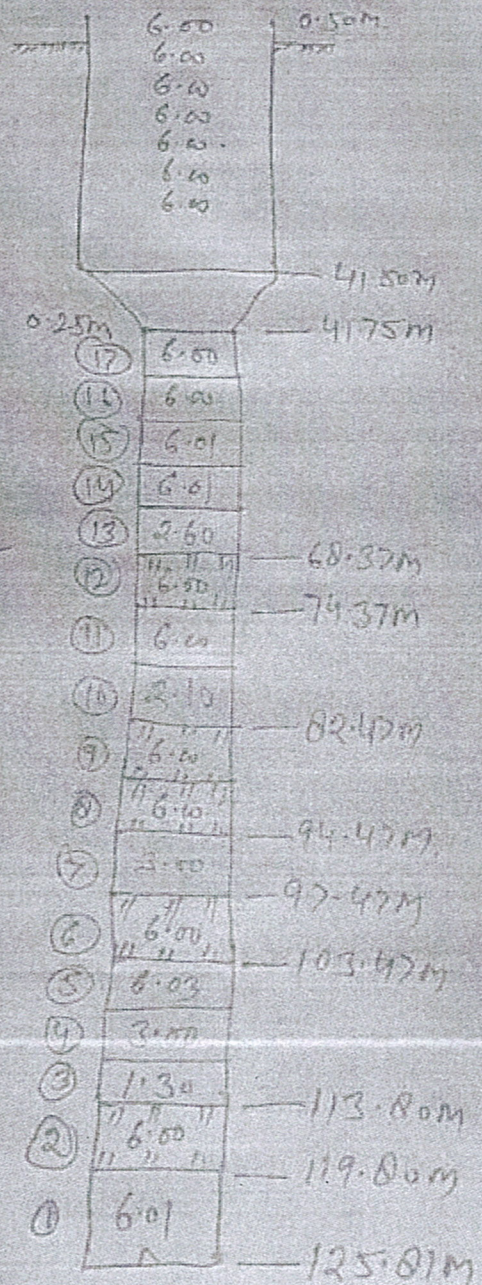 6.00 0.50m
6.00
6.00
6.00
6.00
6.00
6.00
41.50m
0.25m 41.75m
17 6.00
16 6.00
15 6.01
14 6.01
13 2.60
68.37m
12 6.00
74.37m
11 6.00
10 2.10
82.47m
9 6.00
8 6.00
94.47m
7 3.00
97.47m
6 6.00
103.47m
5 6.03
4 3.00
3 1.30
113.80m
2 6.00
119.80m
1 6.01
125.81m